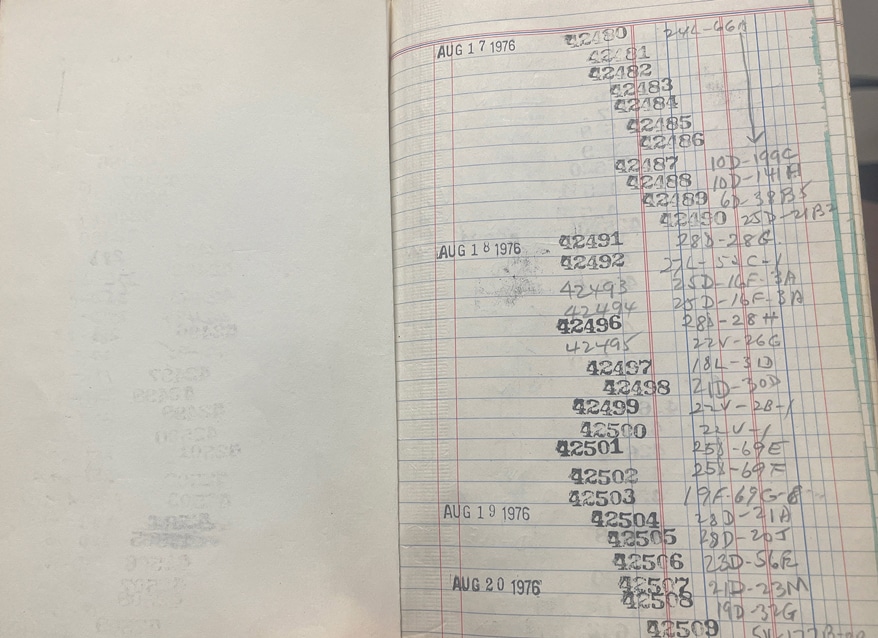 AUG 17 1976 42480 24L-66A
42481
42482
42483
42484
42485
42486
42487 10D-199C
42488 10D-141A
42489 6D-38B5
42490 25D-21B2
AUG 18 1976 42491 28D-28G
42492
42493 25D-16F-3A
42494 25D-16F-3A
42496 28D-28H
42495 22V-26G
42497 18L-31D
42498 21D-30D
42499 22V-2B-1
42500 22V-1
42501 25S-69E
42502 25S-69F
42503 19F-69G-8
AUG 19 1976 42504 28D-21A
42505 28D-20J
42506 23D-56R
AUG 20 1976 42507 21D-23M
42508 19D-32G
42509